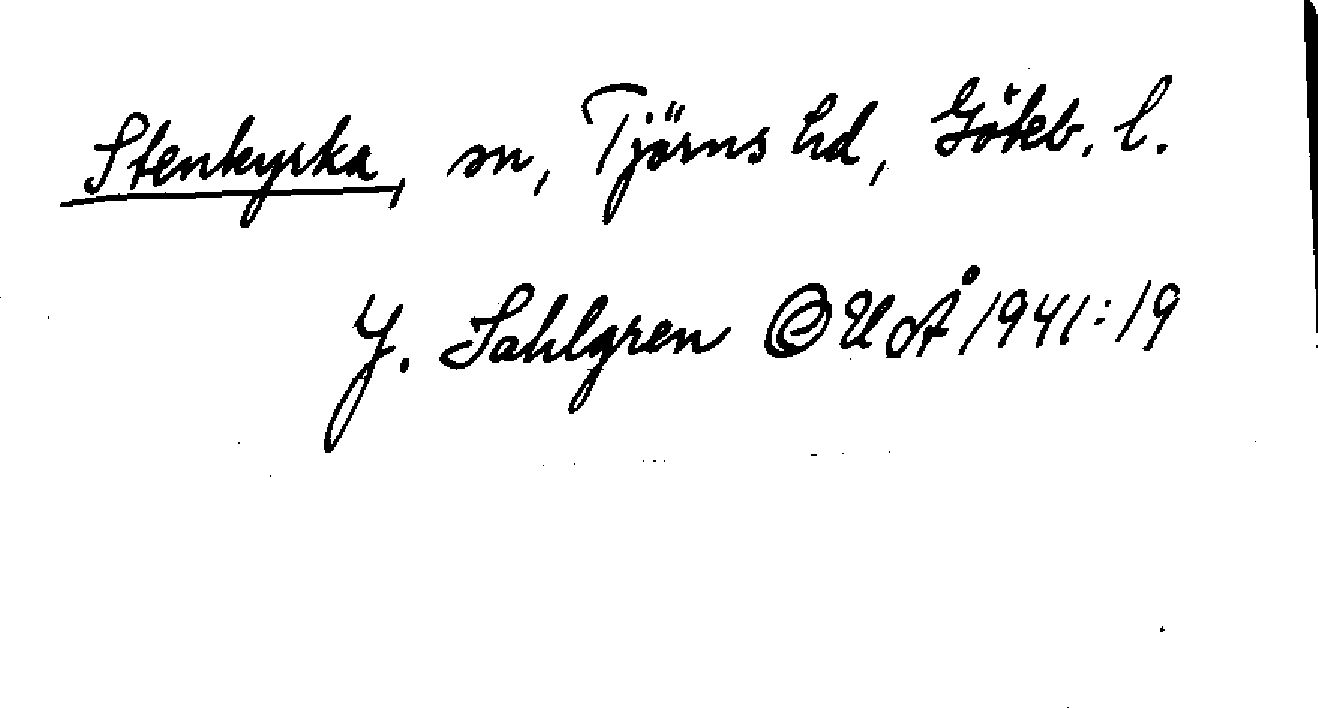 Stenkyrka, sn, Tjörns hd, Göteb. l.
J. Sahlgren @ UoÅ 1941:19